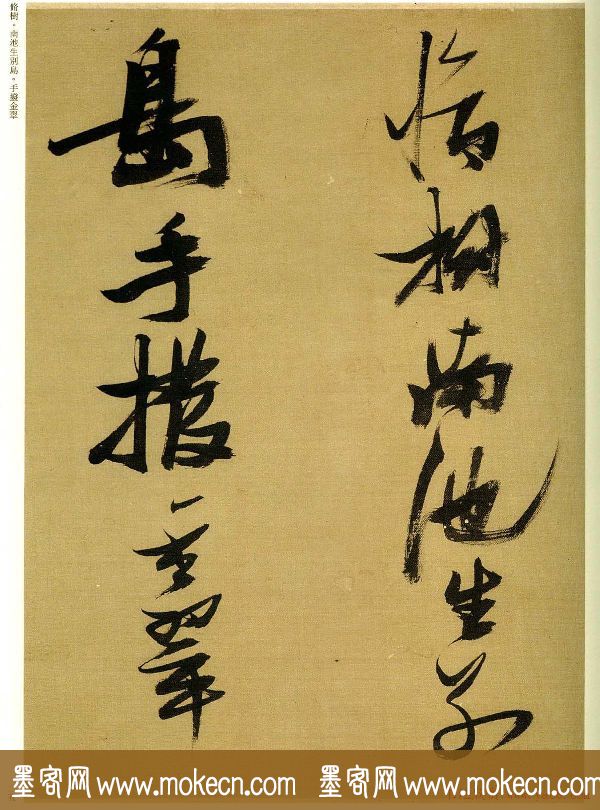 脩樹。南池生別島。手撥金翠
脩樹南池生別
島手撥金翠
墨客网 www.mokecn.com 墨客网 www.mokecn.com